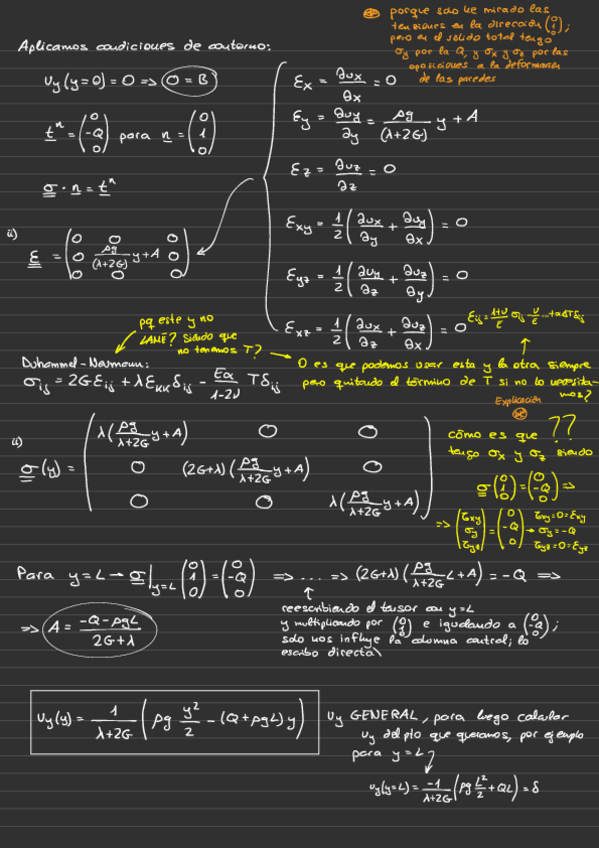 ⊛ porque solo he mirado las
tensiones en la dirección (0 1 0);
pero en el sólido total tengo
σy por la Q, y σx y σz por las
oposiciones a la deformación
de las paredes
Aplicamos condiciones de contorno:
uy (y=0) = 0 => 0 = B
t^n = (0 -Q 0) para n = (0 1 0)
σ · n = t^n
εx = ∂ux/∂x = 0
εy = ∂uy/∂y = ρg/(λ+2G) y + A
εz = ∂uz/∂z = 0
εxy = 1/2 (∂ux/∂y + ∂uy/∂x) = 0
εyz = 1/2 (∂uy/∂z + ∂uz/∂y) = 0
εxz = 1/2 (∂ux/∂z + ∂uz/∂x) = 0
ii)
ε = (0 0 0
0 ρg/(λ+2G) y+A 0
0 0 0)
εij = 1+ν/E σij - ν/E ...+α∆Tδij
pq este y no
LAMÉ? Siendo que
no tenemos T?
O es que podemos usar esta y la otra siempre
pero quitando el término de T si no lo necesita-
mos?
Duhammel-Neumann:
σij = 2Gεij + λεKKδij - Eα/1-2ν Tδij
Explicación
⊛
ii)
σ(y) = (λ(ρg/λ+2G y+A) 0 0
0 (2G+λ)(ρg/λ+2G y+A) 0
0 0 λ(ρg/λ+2G y+A))
cómo es que ??
tengo σx y σz siendo
σ (0 1 0) = (0 -Q 0) =>
=> (τxy σy τyz) = (0 -Q 0) τxy=0=εxy
→ σy=-Q
τyz=0=εyz
Para y=L → σ|y=L (0 1 0) = (0 -Q 0) => ... => (2G+λ)(ρg/λ+2G L+A) = -Q =>
reescribiendo el tensor con y=L
y multiplicando por (0 1 0) e igualando a (0 -Q 0);
solo nos influye la columna central; lo
escribo directa\
=> A = -Q-ρgL/2G+λ
uy(y) = 1/λ+2G (ρg y²/2 - (Q+ρgL)y)
uy GENERAL, para luego calcular
uy del pto que queramos, por ejemplo
para y=L
uy(y=L) = -1/λ+2G (ρg L²/2 + QL) = δ